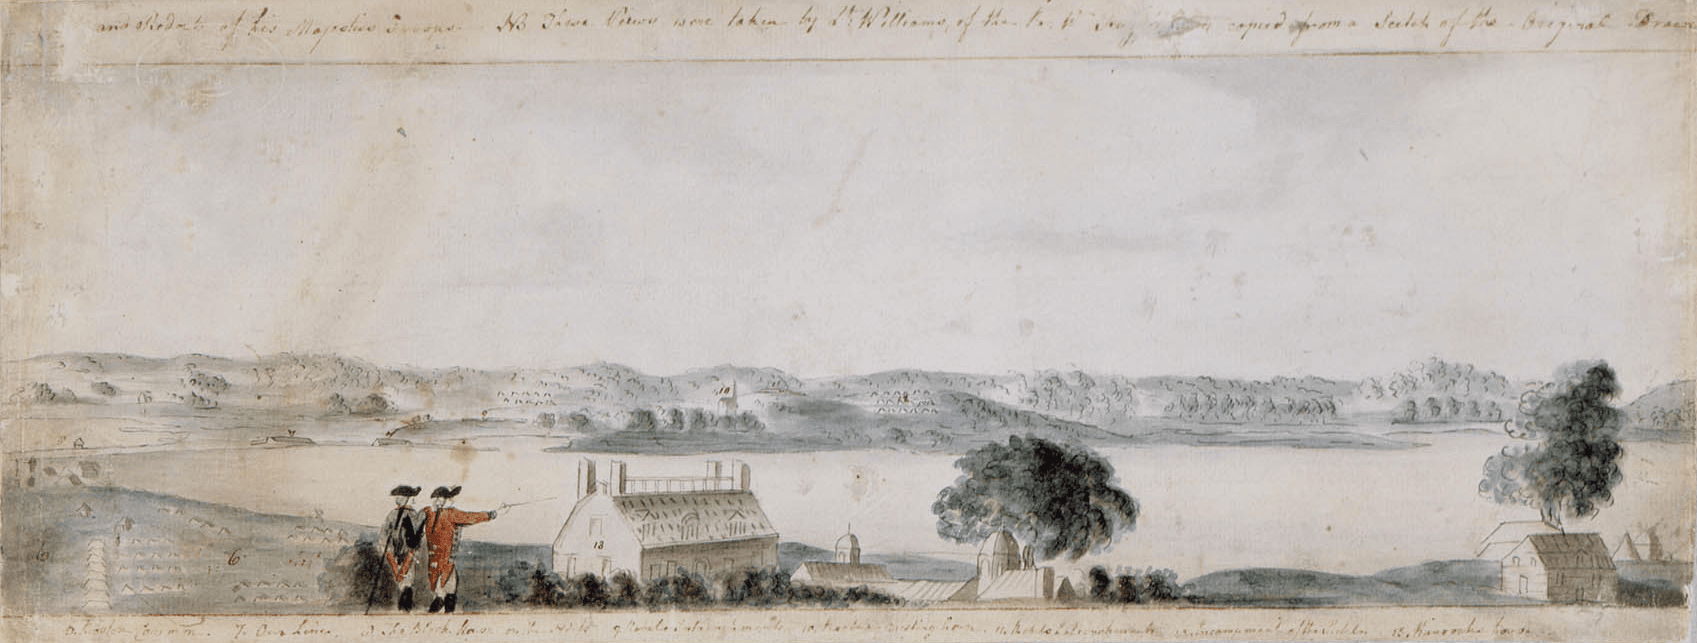 and Redouts of his Majesties Troops. NB These Views were taken by Lt. Williams, of the copied from a Sketch of the Original Draw
10
13
6 6
6 Boston Common. 7 Our Lines. 8 The Block House on the Neck 9 Rebels Intrenchments 10 Meeting house 11 Rebels Intrenchments 12 Encampment of the Rebels 13 house